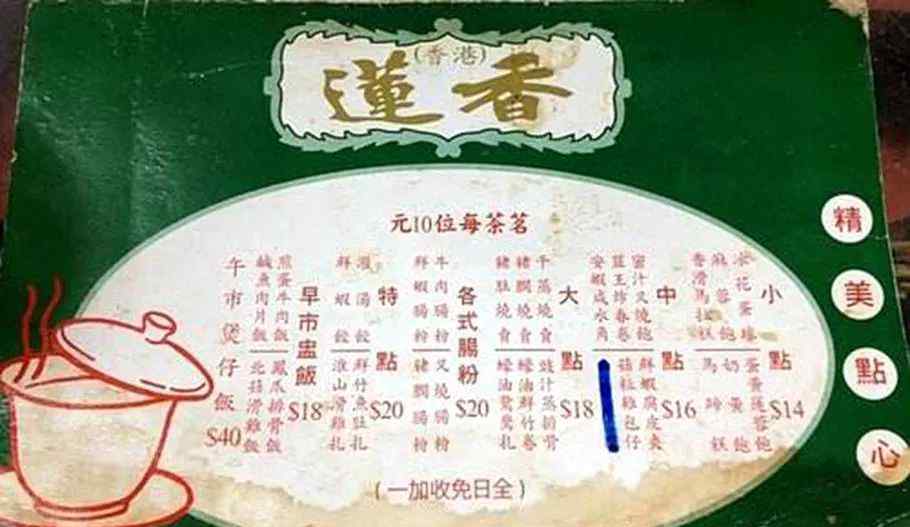 (香港)
蓮香
精美點心
茗茶每位10元
小點 $14
冰花蛋球
麻蓉飽
香滑馬拉糕
蛋黃蓮蓉飽
奶黃飽
馬蹄糕
中點 $16
蜜汁叉燒飽
韮王炸春卷
安蝦咸水角
鮮蝦腐皮夾
菇粒雞包仔
大點 $18
干蒸燒賣
豬膶燒賣
豬肚燒賣
豉汁蒸排骨
蠔油鮮竹卷
蠔油鴛鴦扎
各式腸粉 $20
牛肉腸粉
鮮蝦腸粉
叉燒腸粉
豬膶腸粉
特點 $20
灌湯餃
鮮蝦餃
鮮竹魚肚扎
淮山滑雞扎
早市盅飯 $18
煎蛋牛肉飯
鹹魚肉片飯
鳳爪排骨飯
北菇滑雞飯
午市煲仔飯 $40
(全日免收加一)